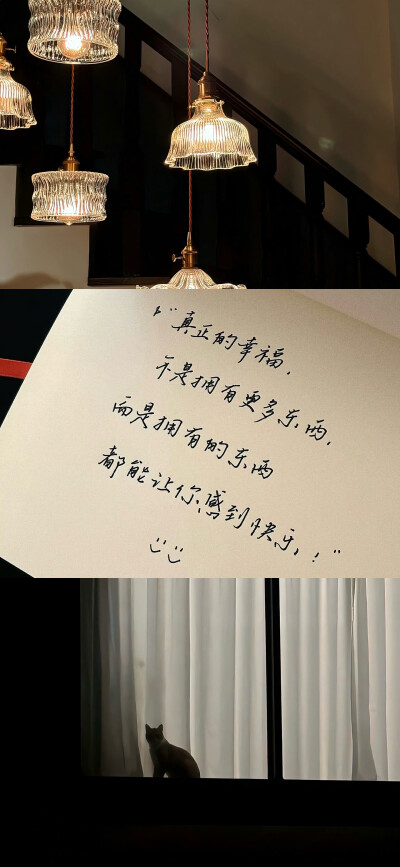 “真正的幸福，
不是拥有更多东西，
而是拥有的东西
都能让你感到快乐！”